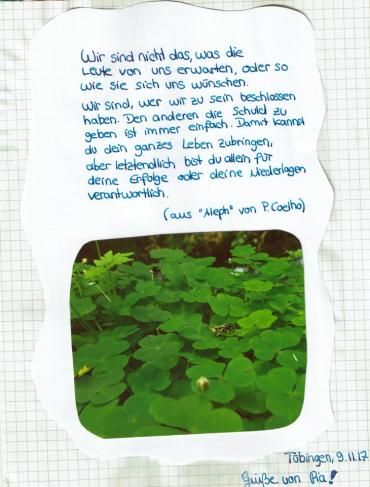 Wir sind nicht das, was die
Leute von uns erwarten, oder so
wie sie sich uns wünschen.
Wir sind, wer wir zu sein beschlossen
haben. Den anderen die Schuld zu
geben ist immer einfach. Damit kannst
du dein ganzes Leben zubringen,
aber letztendlich bist du allein für
deine Erfolge oder deine Niederlagen
verantwortlich.
(aus "Aleph" von P. Coelho)
Tübingen, 9.11.17
Grüße von Pia!